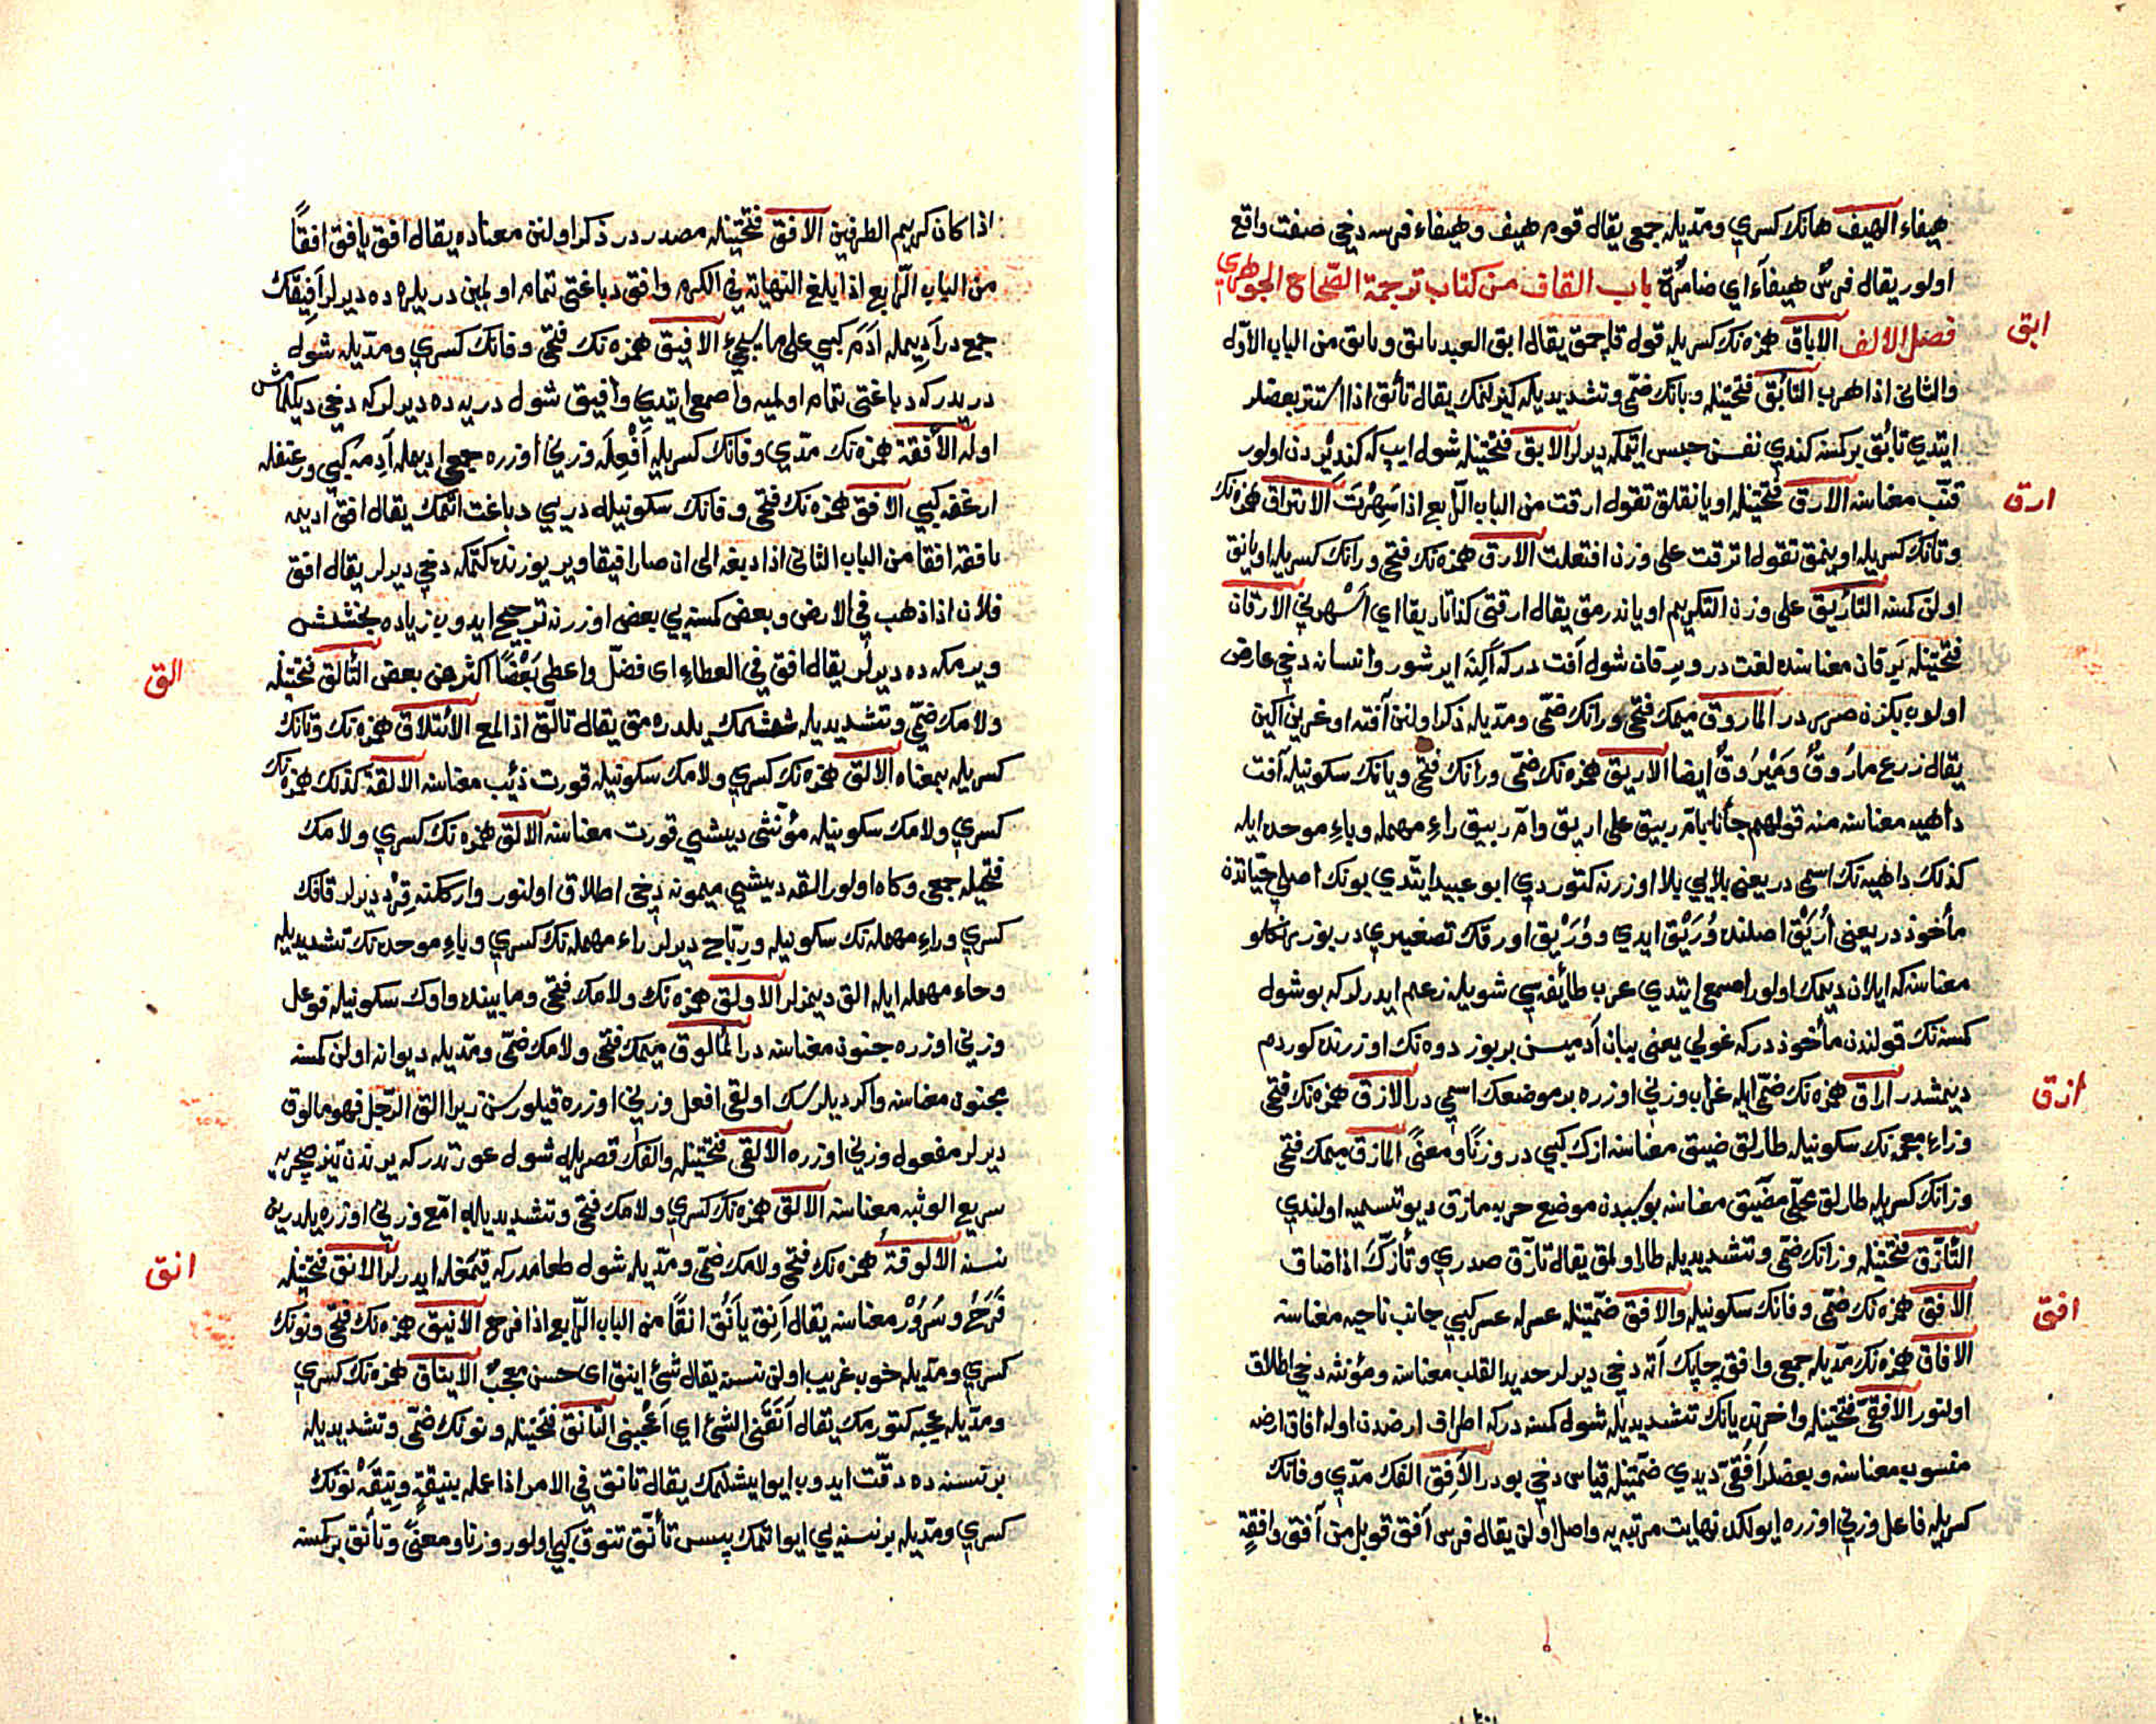 هيفاء الهيف هانك كسري ومدّيله جمعى يقال قوم هيف وهيفاء فرسه دخى صفت واقع
اولور يقال فرسٌ هيفآء اي ضامرة باب القاف من كتاب ترجمة الصّحاح الجوهري
ابق
فصل الالف الاباق همزه نك كسريله قول قاچمق يقال ابق العبد يابق ويابق من الباب الاوّل
والثانى اذا هرب التأبّق فتحتيله وبانك ضمّى وتشديديله كيزلنمك يقال تأبّق اذا استتر بعضلر
ايتدي تأبّق بركمسنه كندي نفسن حبس ايتمكه ديرلر الابق فتحتيله شول ايپ كه كندیردن اولور
ارق
قنّب معناسنه الارق فتحتيله اويانقلق تقول ارقت من الباب الرّابع اذا سهرت الايتراق همزه نك
وتانك كسريله اويومق تقول اترقت على وزن افتعلت الارق همزه نك فتحى ورانك كسريله اويانق
اولن كمسنه التأريق على وزن التكريم اوياندرمق يقال ارقنى كذا تاريقا اي اسهرني الارقان
فتحتيله يرقان معناسنده لغت در ويرقان شول آفت دركه اكينه ايرشور وانسانه دخى عارض
اولوب بكزن صرر در المأروق ميمك فتحى ورانك ضمّى ومدّيله ذكر اولنن آفته اوغرين اكين
يقال زرع مارُوقٌ ومَيْرُوقٌ ايضا الاريق همزه نك ضمّى ورانك فتحى ويانك سكونيله آفت
داهيه معناسنه منه قولهم جأنا بامّ ربيق على اريق وامّ ربيق راءِ مهمله وباءِ موحده ايله
كذلك داهيه نك اسمى در يعنى بلايي بلا اوزرنه كتوردي ابو عبيد ايتدي بونك اصلى حيّاتدن
مأخوذ در يعنى اُرَيْق اصلنده وُرَيْق ايدي ووُرَيْق اورقك تصغيري در بوز رنكلو
معناسنه كه ايلان ديمك اولور اصمعى ايتدي عرب طائفه سي شويله زعم ايدرلر كه بو شول
كمسنه نك قولندن مأخوذ دركه غولي يعنى بيابان آدميسن بر بوز دوه نك اوزرنده كوردم
ازق
ديمشدر اراق همزه نك ضمّى ايله غراب وزني اوزره بر موضعك اسمي در الازق همزه نك فتحى
وزاءِ معجمه نك سكونيله طارلق ضيق معناسنه ازك كبي در وزنًا ومعنًى المازق ميمك فتحى
وزانك كسريله طارلق محلّى مضيق معناسنه بو سببدن موضع حربه مازق ديو تسميه اولندي
التأزّق فتحتيله وزانك ضمّى وتشديديله طار اولمق يقال تأزّق صدري وتأزّك اذا ضاق
افق
الافق همزه نك ضمّى وفانك سكونيله والافق ضمّتيله عسر له عسر كبي جانب ناحيه معناسنه
الافاق همزه نك مدّيله جمعى وافق چاپك آته دخى ديرلر حديد القلب معناسنه ومؤنثه دخى اطلاق
اولنور الافقىّ فتحتيله واخرنده يانك تشديديله شول كمسنه دركه اطراف ارضدن اوله افاق ارضه
منسوب معناسنه وبعضلر اُفقىّ ديدي ضمّتيله قياس دخى بودر الآفق الفك مدّي وفانك
كسريله فاعل وزني اوزره ايولكده نهايت مرتبه يه واصل اولن يقال فرس آفق قوبل من آفق وافقةٍ
اذا كان كريم الطرفين الافق فتحتيله مصدر در ذكر اولنن معناده يقال افق يافق افقًا
من الباب الرّابع اذا يلغ النهاية في الكرم وافق دباغتى تمام اولمين دريلره ده ديرلر اَفيقك
جمع در اديمله اَدَم كبي على ما سيجيء الافيق همزه نك فتحى وفانك كسري ومدّيله شول
دريدركه دباغتى تمام اولميه واصمعى ايتدي وافيق شول دريه ده ديرلر كه دخى ديكلمامش
اوله الأفقة همزه نك مدّي وفانك كسريله اَفْعِلَه وزني اوزره جمعى اديمله آدمه كبي ورغيفله
ارغفه كبي الافق همزه نك فتحى وفانك سكونيله دريي دباغت اتمك يقال افق اديمه
يافقه افقا من الباب الثانى اذا دبغه الى ان صار افيقا وير يوزنده كتمكه دخى ديرلر يقال افق
فلان اذا ذهب في الارض وبعض كمسنه يي بعض اوزرنه ترجيح ايدوب زياده بخشش
الق
ويرمكه ده ديرلر يقال افق في العطاءِ اى فضّل واعطى بَعْضًا اكثر من بعض التألّق فتحتيله
ولامك ضمّى وتشديديله شمشمك يلدره مق يقال تالّق اذا لمع الائتلاق همزه نك وتانك
كسريله بمعناه الالق همزه نك كسري ولامك سكونيله قورت ذئب معناسنه الالقة كذلك همزه نك
كسري ولامك سكونيله مؤنثى ديشي قورت معناسنه الالق همزه نك كسري ولامك
فتحيله جمعى وكاه اولور القه ديشي ميمونه دخى اطلاق اولنور واركلنه قِرْد ديرلر قافك
كسري وراءِ مهمله نك سكونيله ورُبّاح ديرلر راءِ مهمله نك كسري وباءِ موحده نك تشديديله
وحاء مهمله ايله الق ديمزلر الاولق همزه نك ولامك فتحى ومابينده واوك سكونيله فوعل
وزني اوزره جنون معناسنه در المألوق ميمك فتحى ولامك ضمّى ومدّيله ديوانه اولن كمسنه
مجنون معناسنه واكر ديلرسك اولقى افعل وزني اوزره قيلورسن زيرا الق الرّجل فهو مالوق
ديرلر مفعول وزني اوزره الالقى فتحتيله والفك قصريله شول عورتدركه يرندن تيز صچريه
سريع الوثبه معناسنه الالق همزه نك كسري ولامك فتحى وتشديديله امّع وزني اوزره يلديرين
انق
نسنه الالوقة همزه نك فتحى ولامك ضمّى ومدّيله شول طعامدركه قيمغله ايدرلر الانق فتحتيله
فَرَحٌ وسُرُورْ معناسنه يقال اَنِق يأنَق انقًا من الباب الرّابع اذا فرح الانيق همزه نك فتحى ونونك
كسري ومدّيله خوب غريب اولن نسنه يقال شئ انيق اى حسن معجبٌ الايناق همزه نك كسري
ومدّيله عجبه كتورمك يقال آنَقَني الشئ اي اَعْجبنى التأنّق فتحتيله ونونك ضمّى وتشديديله
بر نسنه ده دقّت ايدوب ايو ايشلمك يقال تانّق في الامر اذا عمله بنيقةٍ ونيقَهْ نونك
كسري ومدّيله بر نسنه يي ايو اتمك پس تأنّق تنوق كبي اولور وزنا ومعنًى وتأنّق بركمسنه